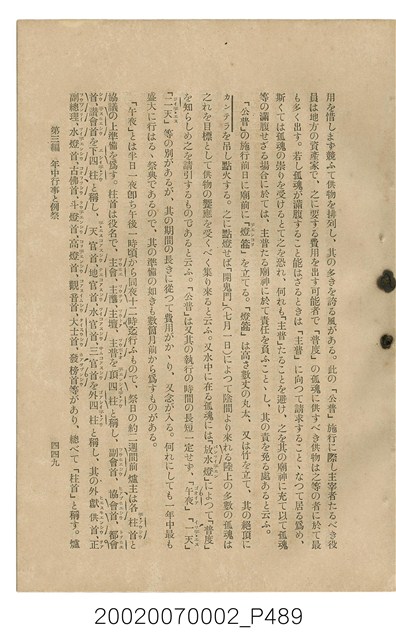 用を惜します競ふて供物を排列し、其の多きを誇る風がある。此の「公普」施行に際し主宰者たるべき役
員は地方の資產家で、之に要する費用を出す可能者で「普度」の孤魂に供すべき供物は之等の者に於て最
も多く出す。若し孤魂が滿腹すること能はざるときは「主普」に向つて請求すること、なつて居る爲め、
斯くては孤魂の崇りを受けるとて之を恐れ、何れも「主普」たることを避け、之を其の廟神に充て以て孤魂
等の滿腹せざる場合に於ては、主普たる廟神に於て責任を負ふこと、し、其の責を免る處あると云ふ。
「公普」の施行前日に廟前に「燈篙」を立てる。「燈篙」は高さ數丈の丸太、又は竹を立て、其の絕頂に
カンテラを吊し點火する。之に點燈せば「開鬼門」(七月一日)によつて陰間より來れる陸上の多數の孤魂は
之れを目標として供物の饗應を受くべく集り來ると云ふ。又水中に在る孤魂には「放水燈」によつて「普度」
を知らしめ之を請引するものであると云ふ。「公普」は又其の執行の時間の長短一定せず、「午夜」、「一天」
「二天」等の別があるが、其の期間の長きに從つて費用がかゝり、又念が入る。何れにしても一年中最も
盛大に行はるゝ祭典であるので、其の準備の如きも數箇月前から爲すものがある。
「午夜」とは半日一夜卽ち午後一時頃から同夜十二時迄行ふもので、祭日の約二週間前爐主は各柱首と
協議の上準備を爲す。柱首は役名で、主會、主醮、主壇、主普を頂四柱と稱し、副會首、協會首、都會
首、讚會首を下四柱と稱し、天官首、地官首、水官首、三官首を外四柱と稱し、其の外獻供首、正
副總理、水燈首、古佛首、斗燈首、高燈首、觀音首、大士首、發榜首等があり、總べて「柱首」と稱す。爐
第三編 年中行事と例祭 四四九
20020070002_P489